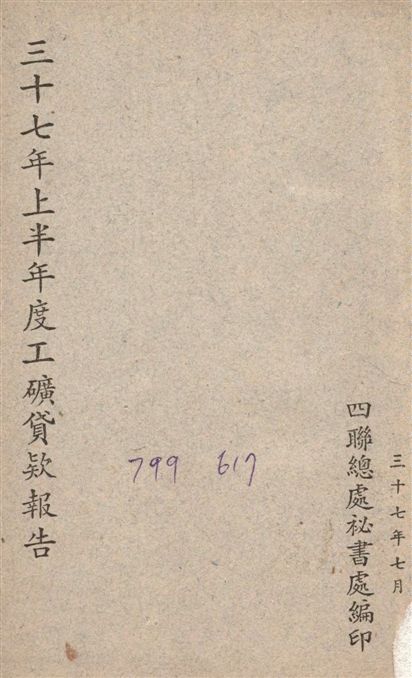 三十七年七月
四聯總處祕書處編印
三十七年上半年度工礦貸欵報告
799 617